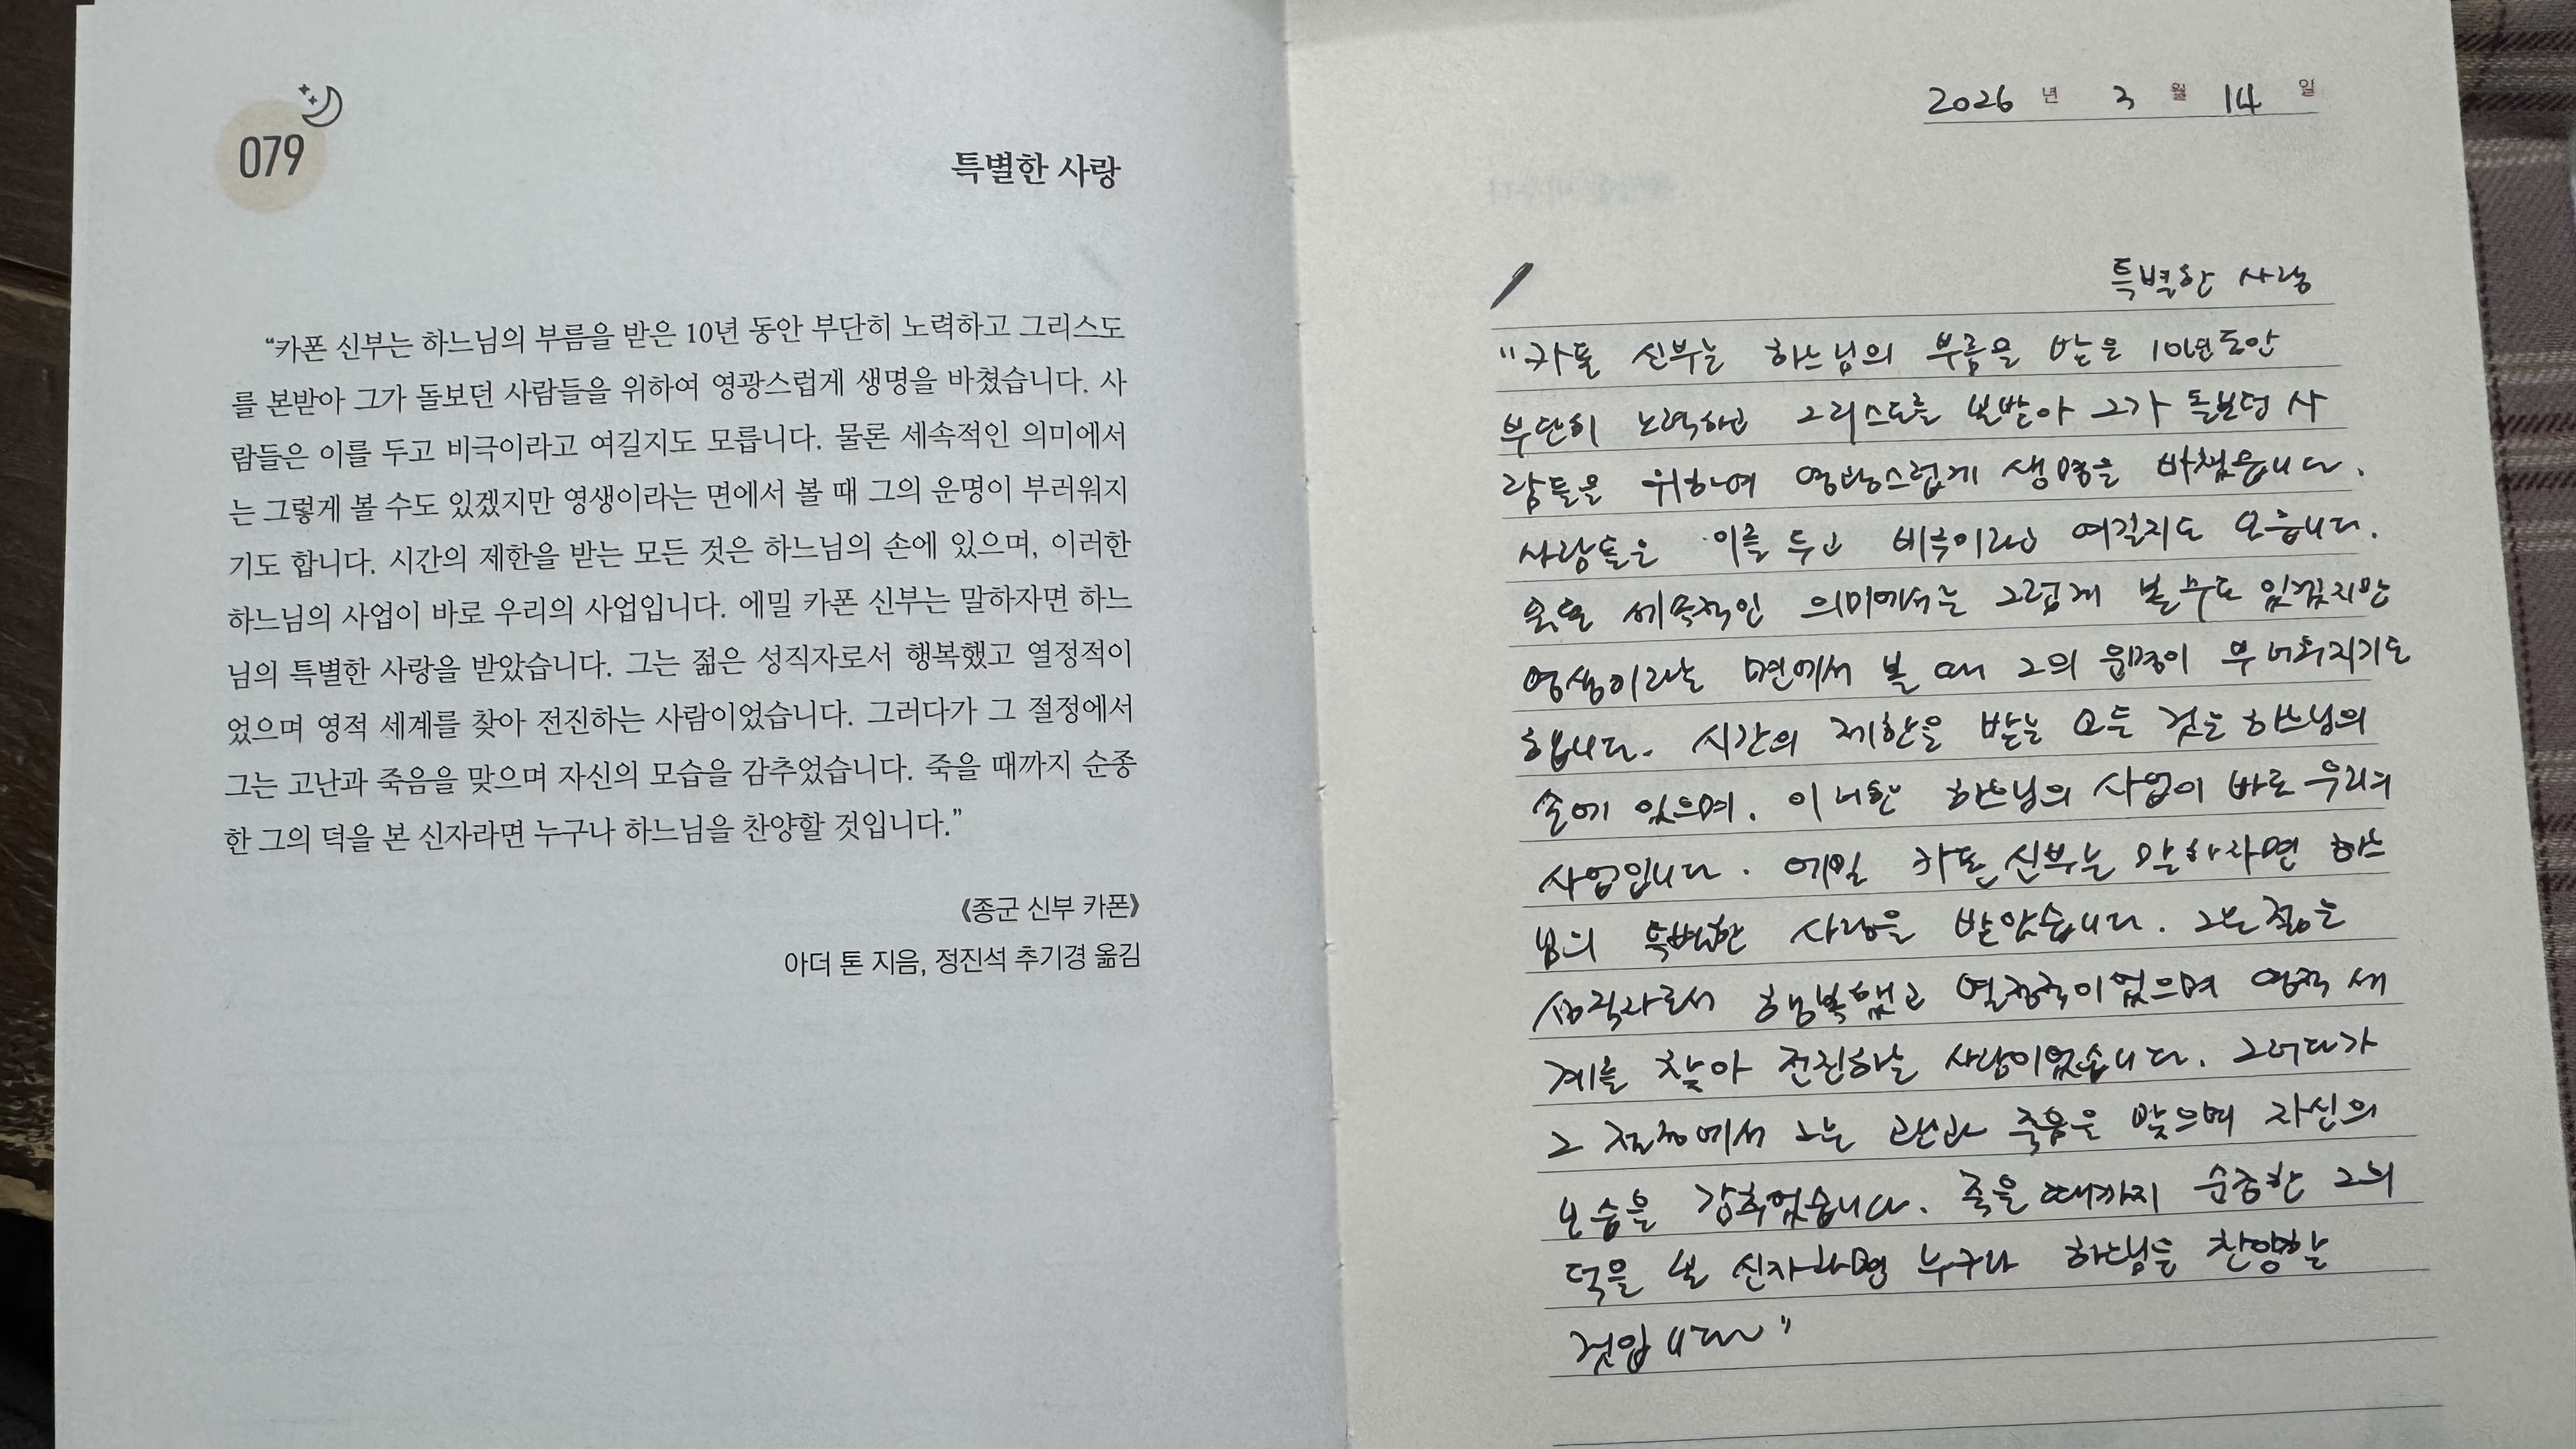 079
특별한 사랑
“카폰 신부는 하느님의 부름을 받은 10년 동안 부단히 노력하고 그리스도
를 본받아 그가 돌보던 사람들을 위하여 영광스럽게 생명을 바쳤습니다. 사
람들은 이를 두고 비극이라고 여길지도 모릅니다. 물론 세속적인 의미에서
는 그렇게 볼 수도 있겠지만 영생이라는 면에서 볼 때 그의 운명이 부러워지
기도 합니다. 시간의 제한을 받는 모든 것은 하느님의 손에 있으며, 이러한
하느님의 사업이 바로 우리의 사업입니다. 에밀 카폰 신부는 말하자면 하느
님의 특별한 사랑을 받았습니다. 그는 젊은 성직자로서 행복했고 열정적이
었으며 영적 세계를 찾아 전진하는 사람이었습니다. 그러다가 그 절정에서
그는 고난과 죽음을 맞으며 자신의 모습을 감추었습니다. 죽을 때까지 순종
한 그의 덕을 본 신자라면 누구나 하느님을 찬양할 것입니다.”
《종군 신부 카폰》
아더 톤 지음, 정진석 추기경 옮김
2026 년 3 월 14 일
특별한 사랑
"카폰 신부는 하느님의 부름을 받은 10년동안
부단히 노력하고 그리스도를 본받아 그가 돌보던 사
람들을 위하여 영광스럽게 생명을 바쳤습니다.
사람들은 이를 두고 비극이라고 여길지도 모릅니다.
물론 세속적인 의미에서는 그렇게 볼 수도 있겠지만
영생이라는 면에서 볼 때 그의 운명이 부러워지기도
합니다. 시간의 제한을 받는 모든 것은 하느님의
손에 있으며, 이러한 하느님의 사업이 바로 우리의
사업입니다. 에밀 카폰 신부는 말하자면 하느
님의 특별한 사랑을 받았습니다. 그는 젊은
성직자로서 행복했고 열정적이었으며 영적 세
계를 찾아 전진하는 사람이었습니다. 그러다가
그 절정에서 그는 고난과 죽음을 맞으며 자신의
모습을 감추었습니다. 죽을 때까지 순종한 그의
덕을 본 신자라면 누구나 하느님을 찬양할
것입니다"